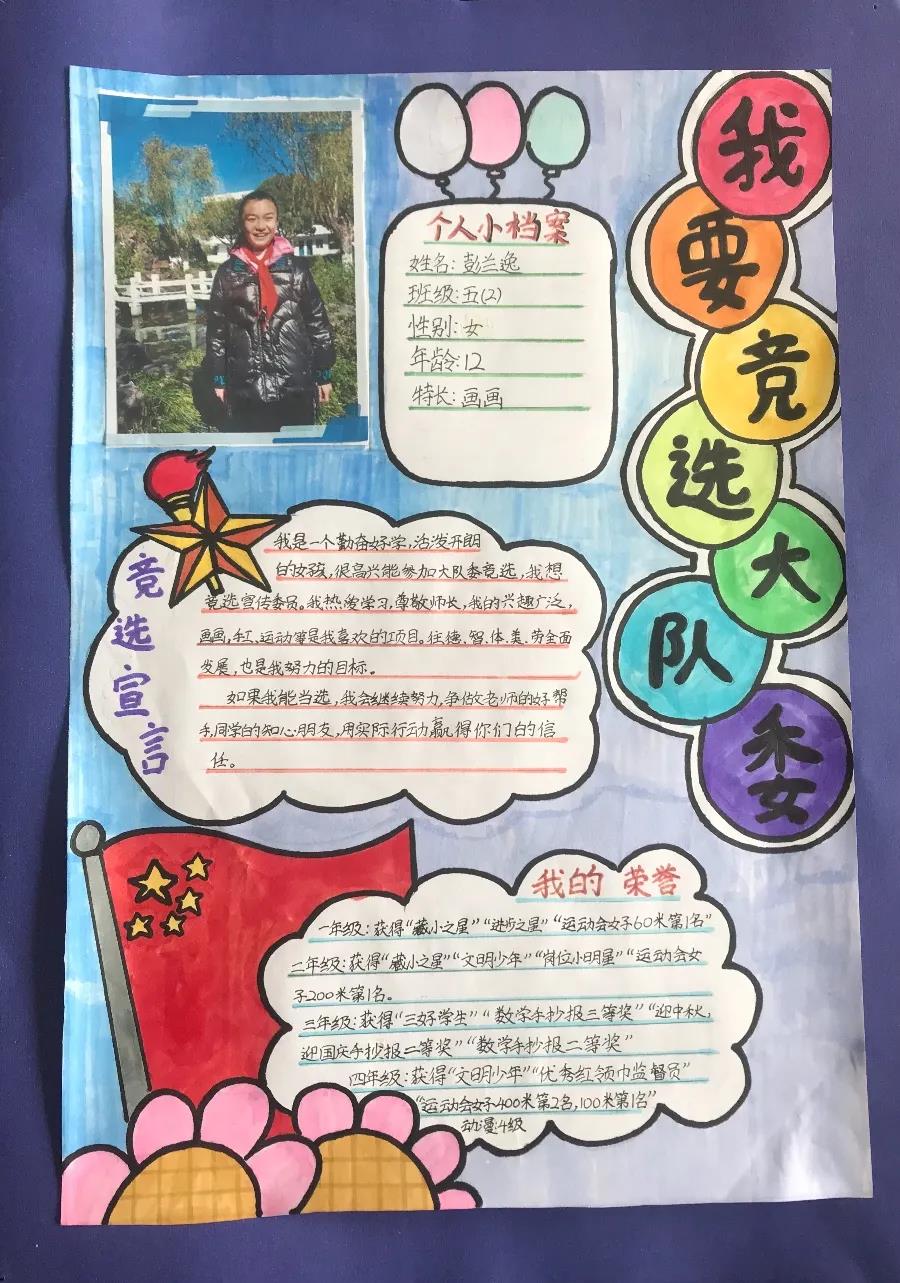 我要竞选大队委
个人小档案
姓名:彭兰逸
班级:五(2)
性别:女
年龄:12
特长:画画
竞选宣言
我是一个勤奋好学,活泼开朗
的女孩,很高兴能参加大队委竞选,我想
竞选宣传委员。我热爱学习,尊敬师长,我的兴趣广泛,
画画,手工,运动等是我喜欢的项目。往德、智、体、美、劳全面
发展,也是我努力的目标。
如果我能当选,我会继续努力,争做老师的好帮
手,同学的知心朋友,用实际行动赢得你们的信
任。
我的荣誉
一年级:获得“藏小之星”“进步之星”“运动会女子60米第1名”
二年级:获得“藏小之星”“文明少年”“岗位小明星”“运动会女
子200米第1名。
三年级:获得“三好学生”“数学手抄报三等奖”“迎中秋,
迎国庆手抄报二等奖”“数学手抄报二等奖”
四年级:获得“文明少年”“优秀红领巾监督员”
“运动会女子400米第2名,100米第1名”
动漫4级